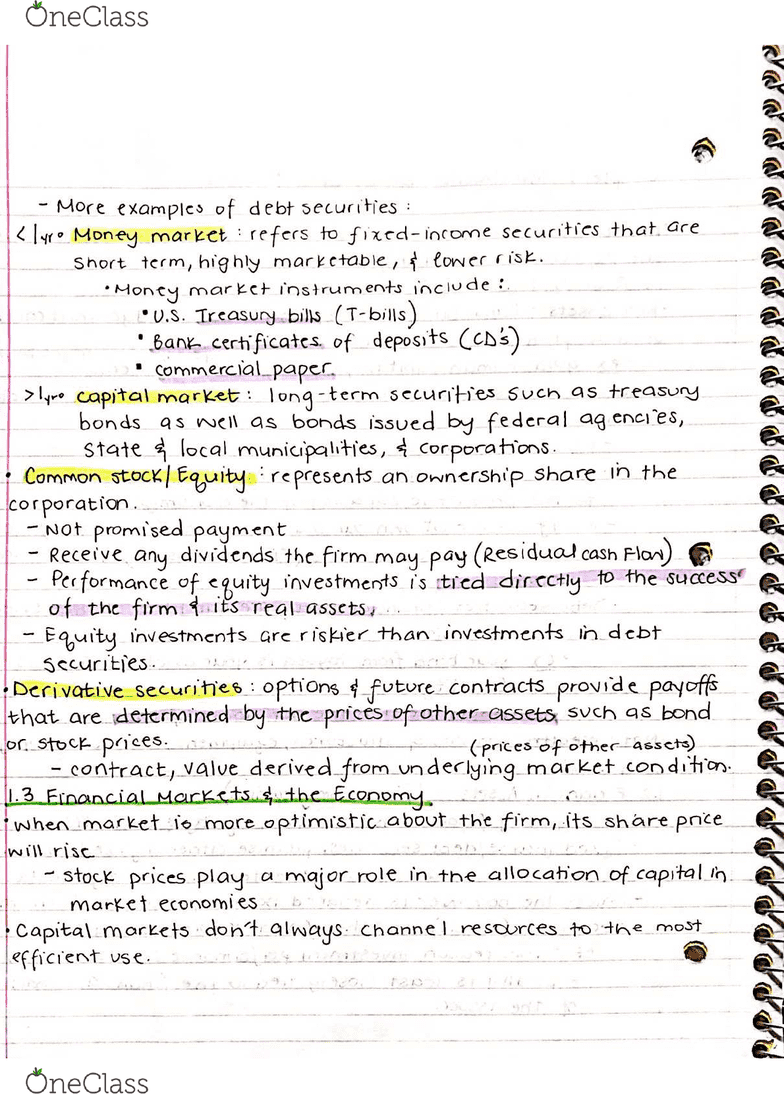 OneClass
- More examples of debt securities :
< 1yr • Money market : refers to fixed-income securities that are
short term, highly marketable, & lower risk.
• Money market instruments include :
• U.S. Treasury bills (T-bills)
• Bank certificates of deposits (CD's)
• commercial paper.
>1yr • capital market : long-term securities such as treasury
bonds as well as bonds issued by federal agencies,
State & local municipalities, & corporations.
• Common stock/Equity : represents an ownership share in the
corporation.
- Not promised payment
- Receive any dividends the firm may pay (Residual cash Flow)
- Performance of equity investments is tied directly to the success
of the firm & its real assets.
- Equity investments are riskier than investments in debt
securities.
• Derivative securities : options & future contracts provide payoffs
that are determined by the prices of other assets, such as bond
or stock prices.
(prices of other assets)
- contract, value derived from underlying market condition.
1.3 Financial Markets & the Economy.
• when market is more optimistic about the firm, its share price
will rise
- stock prices play a major role in the allocation of capital in
market economies
• Capital markets don't always channel resources to the most
efficient use.
OneClass